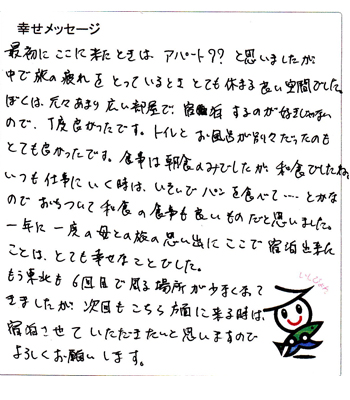 幸せメッセージ
最初にここに来たときは、アパート??と思いましたが、
中で旅の疲れをとっているとき とても休まる良い空間でした。
ぼくは、元々あまり広い部屋で、宿泊するのが好きじゃない
ので、丁度良かったです。トイレとお風呂が別々だったのも
とても良かったです。食事は朝食のみでしたが、和食でしたね。
いつも仕事にいく時は、いそいでパンを食べて…… とかな
ので おちついて和食の食事も良いものだと思いました。
一年に一度の母との旅の思い出にここで宿泊出来た
ことは、とても幸せなことでした。
もう東北も6回目で周る場所が少なくなって
きましたが、次回もこちら方面に来る時は、
宿泊させていただきたいと思いますので
よろしくお願いします。